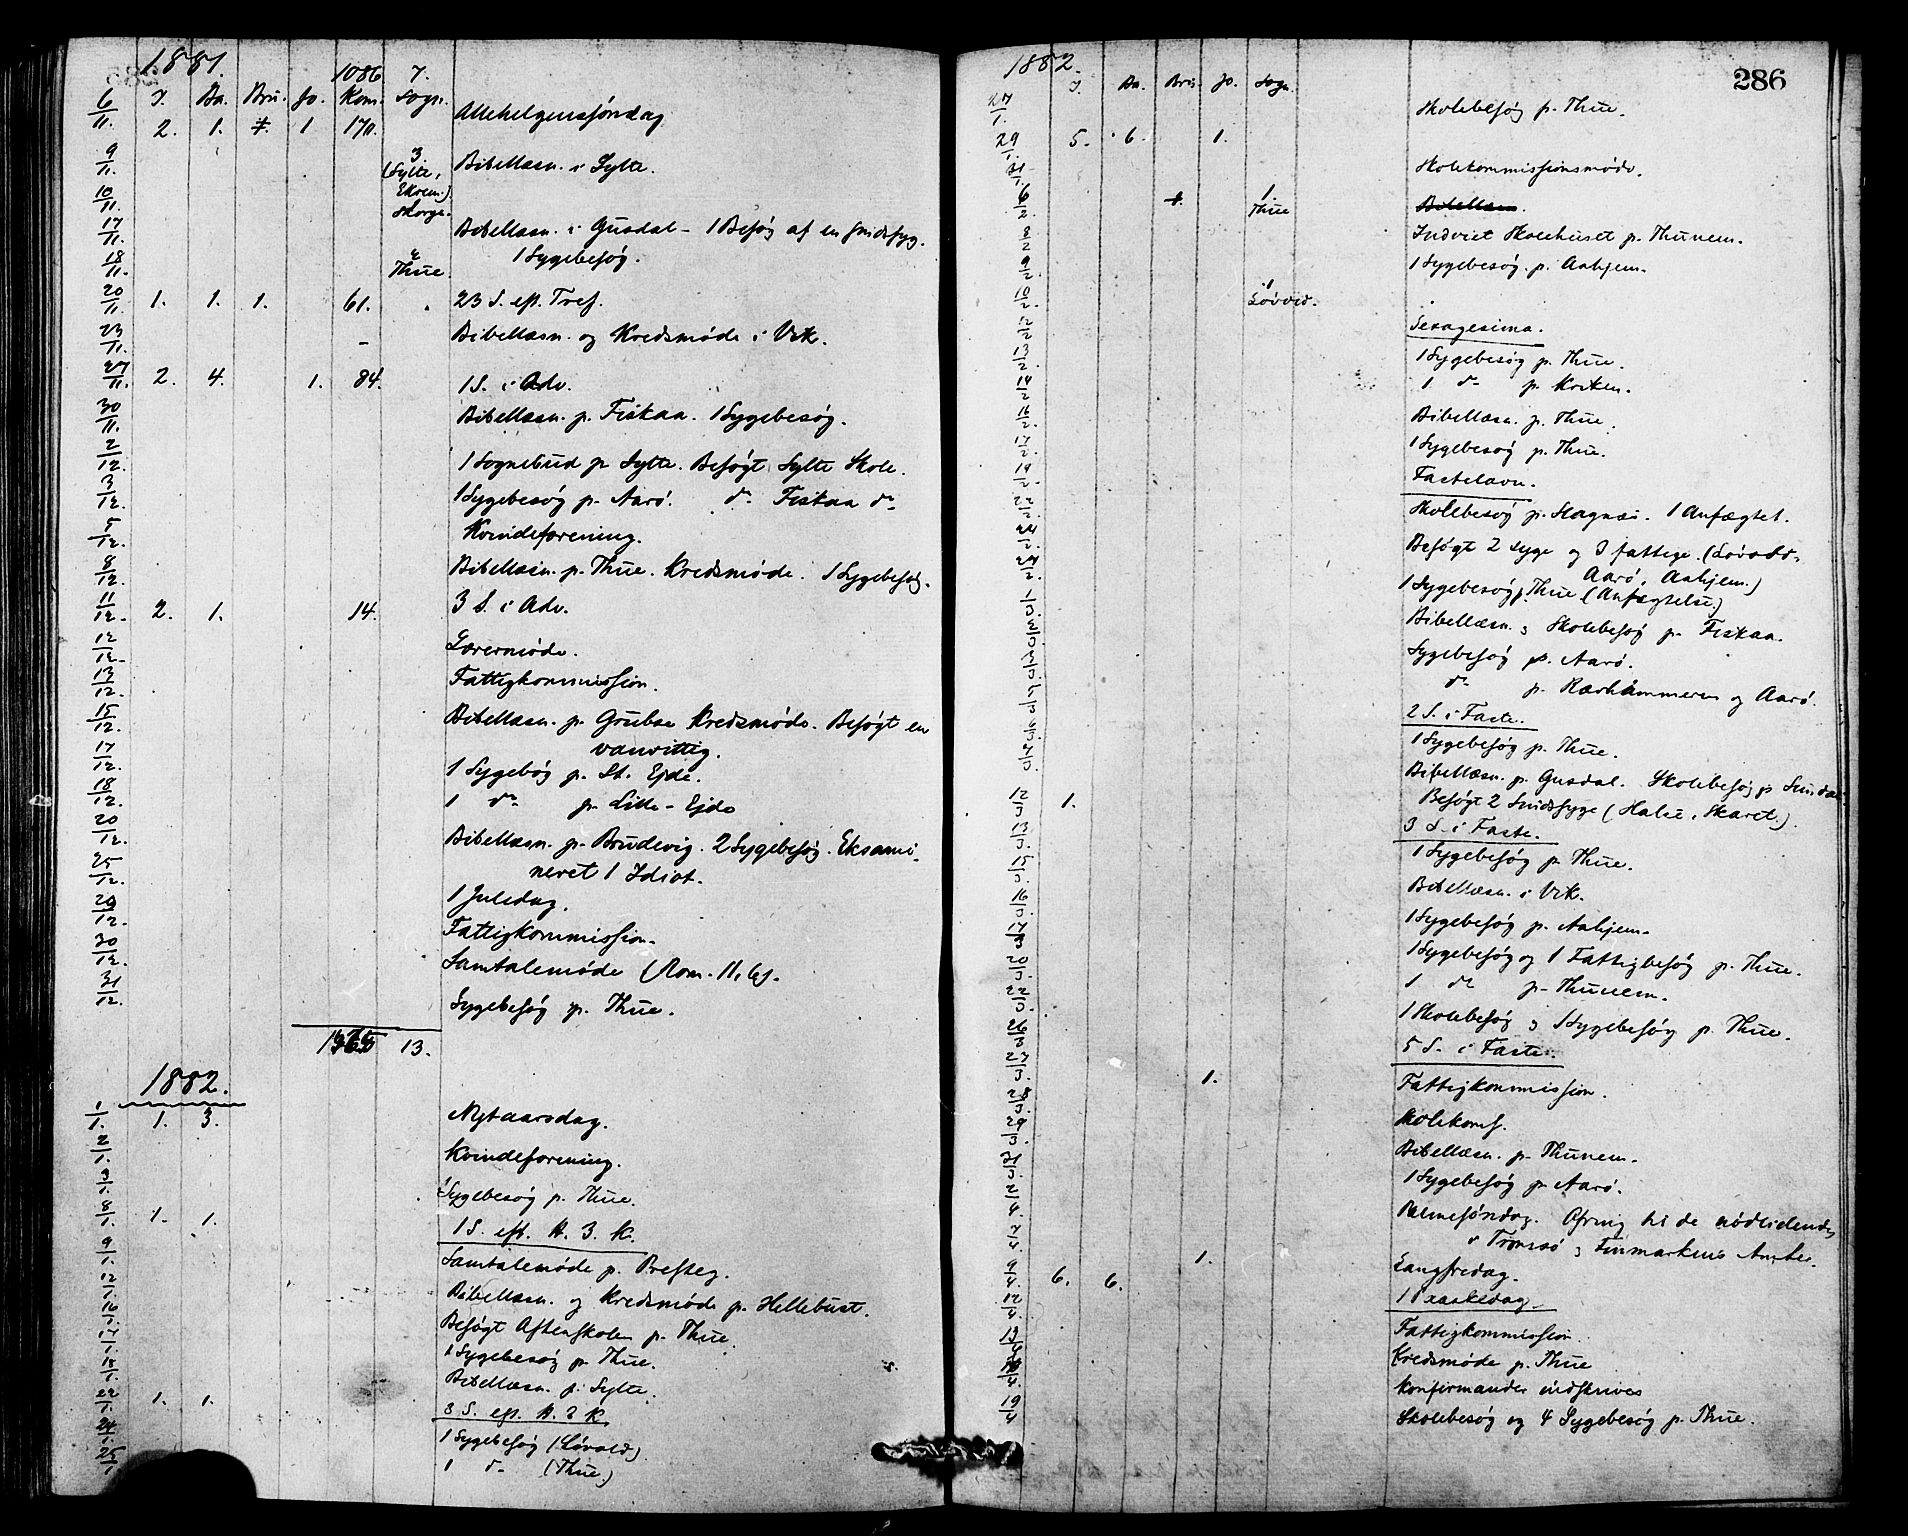 1881.
1086 7.
T. Ba. Bru. Jo. Kom. Sogn.
6/11. 2. 1. 1 170. Allehelgenssöndag
9/11. 3 (Sylte, Bibellæsn. i Sylte.
10/11. Ekrem.)
Skorge.
17/11. Bibellæsn. i Gusdal - 1 Besög af en sindssyg.
18/11. Thue. 1 Sygebesög.
20/11. 1. 1. 1. 61. 23 S. eft. Tref.
23/11. Bibellæsn. og Kredsmöde i Vik.
27/11. 2. 4. 1. 84. 1 S. i Adv.
30/11. Bibellæsn. p. Fiskaa. 1 Sygebesög.
2/12. 1 Sognebud p. Sylte. Besögt Sylte Skole.
3/12. 1 Sygebesög p. Aarö. do Fiskaa do
5/12. Kvindeforening.
8/12. Bibellæsn. p. Thue. Kredsmöde. 1 Sygebesög.
11/12. 2. 1. 14. 3 S. i Adv.
12/12. Lærermöde.
13/12. Fattigkommission.
15/12. Bibellæsn. p. Grubse Kredsmöde. Besögt en
vanvittig.
17/12. 1 Sygebög p. St. Ejde.
18/12. 1 do p. Lille-Ejde
20/12. Bibellæsn. p. Brudevig. 2 Sygebesög. Eksami-
neret 1 Idiot.
25/12. 1 Juledag.
29/12. Fattigkommission.
30/12. Samtalemöde (Rom. 11, 6).
31/12. Sygebesög p. Thue.
13.
1882.
1/1. 1. 3. Nytaarsdag.
2/1. Kvindeforening.
3/1. 1 Sygebesög p. Thue.
8/1. 1. 1. 1 S. eft. H. 3. K.
9/1. Samtalemöde p. Presteg.
12/1. Bibellæsn. og Kredsmöde p. Hellebust.
16/1. Besögt Aftenskolen p. Thue.
17/1. 1 Sygebesög p. Thue.
18/1. Bibellæsn. p. Sylte.
22/1. 1. 1. 3 S. eft. H. 3 K
24/1. 1 Sygebesög (Lövold)
25/1 1 do (Thue.)
286
1882.
T. Ba. Bru. Jo. Sogn.
27/1. Skolebesög p. Thue.
29/1. 5. 6. 1.
31/1. Skolekommissionsmöde.
6/2. 1. Thue Bibellæsn.
8/2 Indviet Skolehuset p. Thunem.
9/2. 1 Sygebesög p. Aahjem.
10/2. 1 Lövold.
12/2 Sexagesima.
13/2. 1 Sygebesög p. Thue.
14/2. 1 do p. Kroken.
16/2. Bibellæsn. p. Thue.
17/2. 1 Sygebesög p. Thue.
19/2. Fastelavn.
22/2. Skolebesög p. Slagnæs. 1 Anfægtet.
Besögt 2 syge og 3 fattige. (Lövold,
Aarö, Aahjem.)
1 Sygebesög p. Thue (Anfægtelse)
Bibellæsn. og Skolebesög p. Fiskaa.
Sygebesög p. Aarö.
do p. Rærhammeren og Aarö.
2 S. i Faste.
1 Sygebesög p. Thue.
Bibellæsn. p. Gusdal. Skolebesög p. Sundal.
12/3. 1. Besögt 2 Sindssyge (Halse, Skaret.)
3 S. i Faste.
13/3. 1 Sygebesög p. Thue.
15/3. Bibellæsn. i Vik.
16/3. 1 Sygebesög p. Aahjem.
17/3. 1 Sygebesög og 1 Fattigbesög p. Thue.
20/3. 1 do p. Thunem.
22/3. 1 Skolebesög og 1 Sygebesög p. Thue.
26/3 5 S. i Faste.
27/3. 1. Fattigkommission.
28/3. Skolekoms.
29/3. Bibellæsn. p. Thunem.
31/3. 1 Sygebesög p. Aarö.
2/4. Palmesöndag. Ofring til de nödlidende
i Tromsö og Finmarkens Amter.
7/4. 1. Langfredag.
9/4. 6. 6. 1 Paaskedag.
12/4. Fattigkommission.
13/4 Kredsmöde p. Thue
Konfirmander indskrives
19/4 Skolebesög og 4 Sygebesög p. Thue.